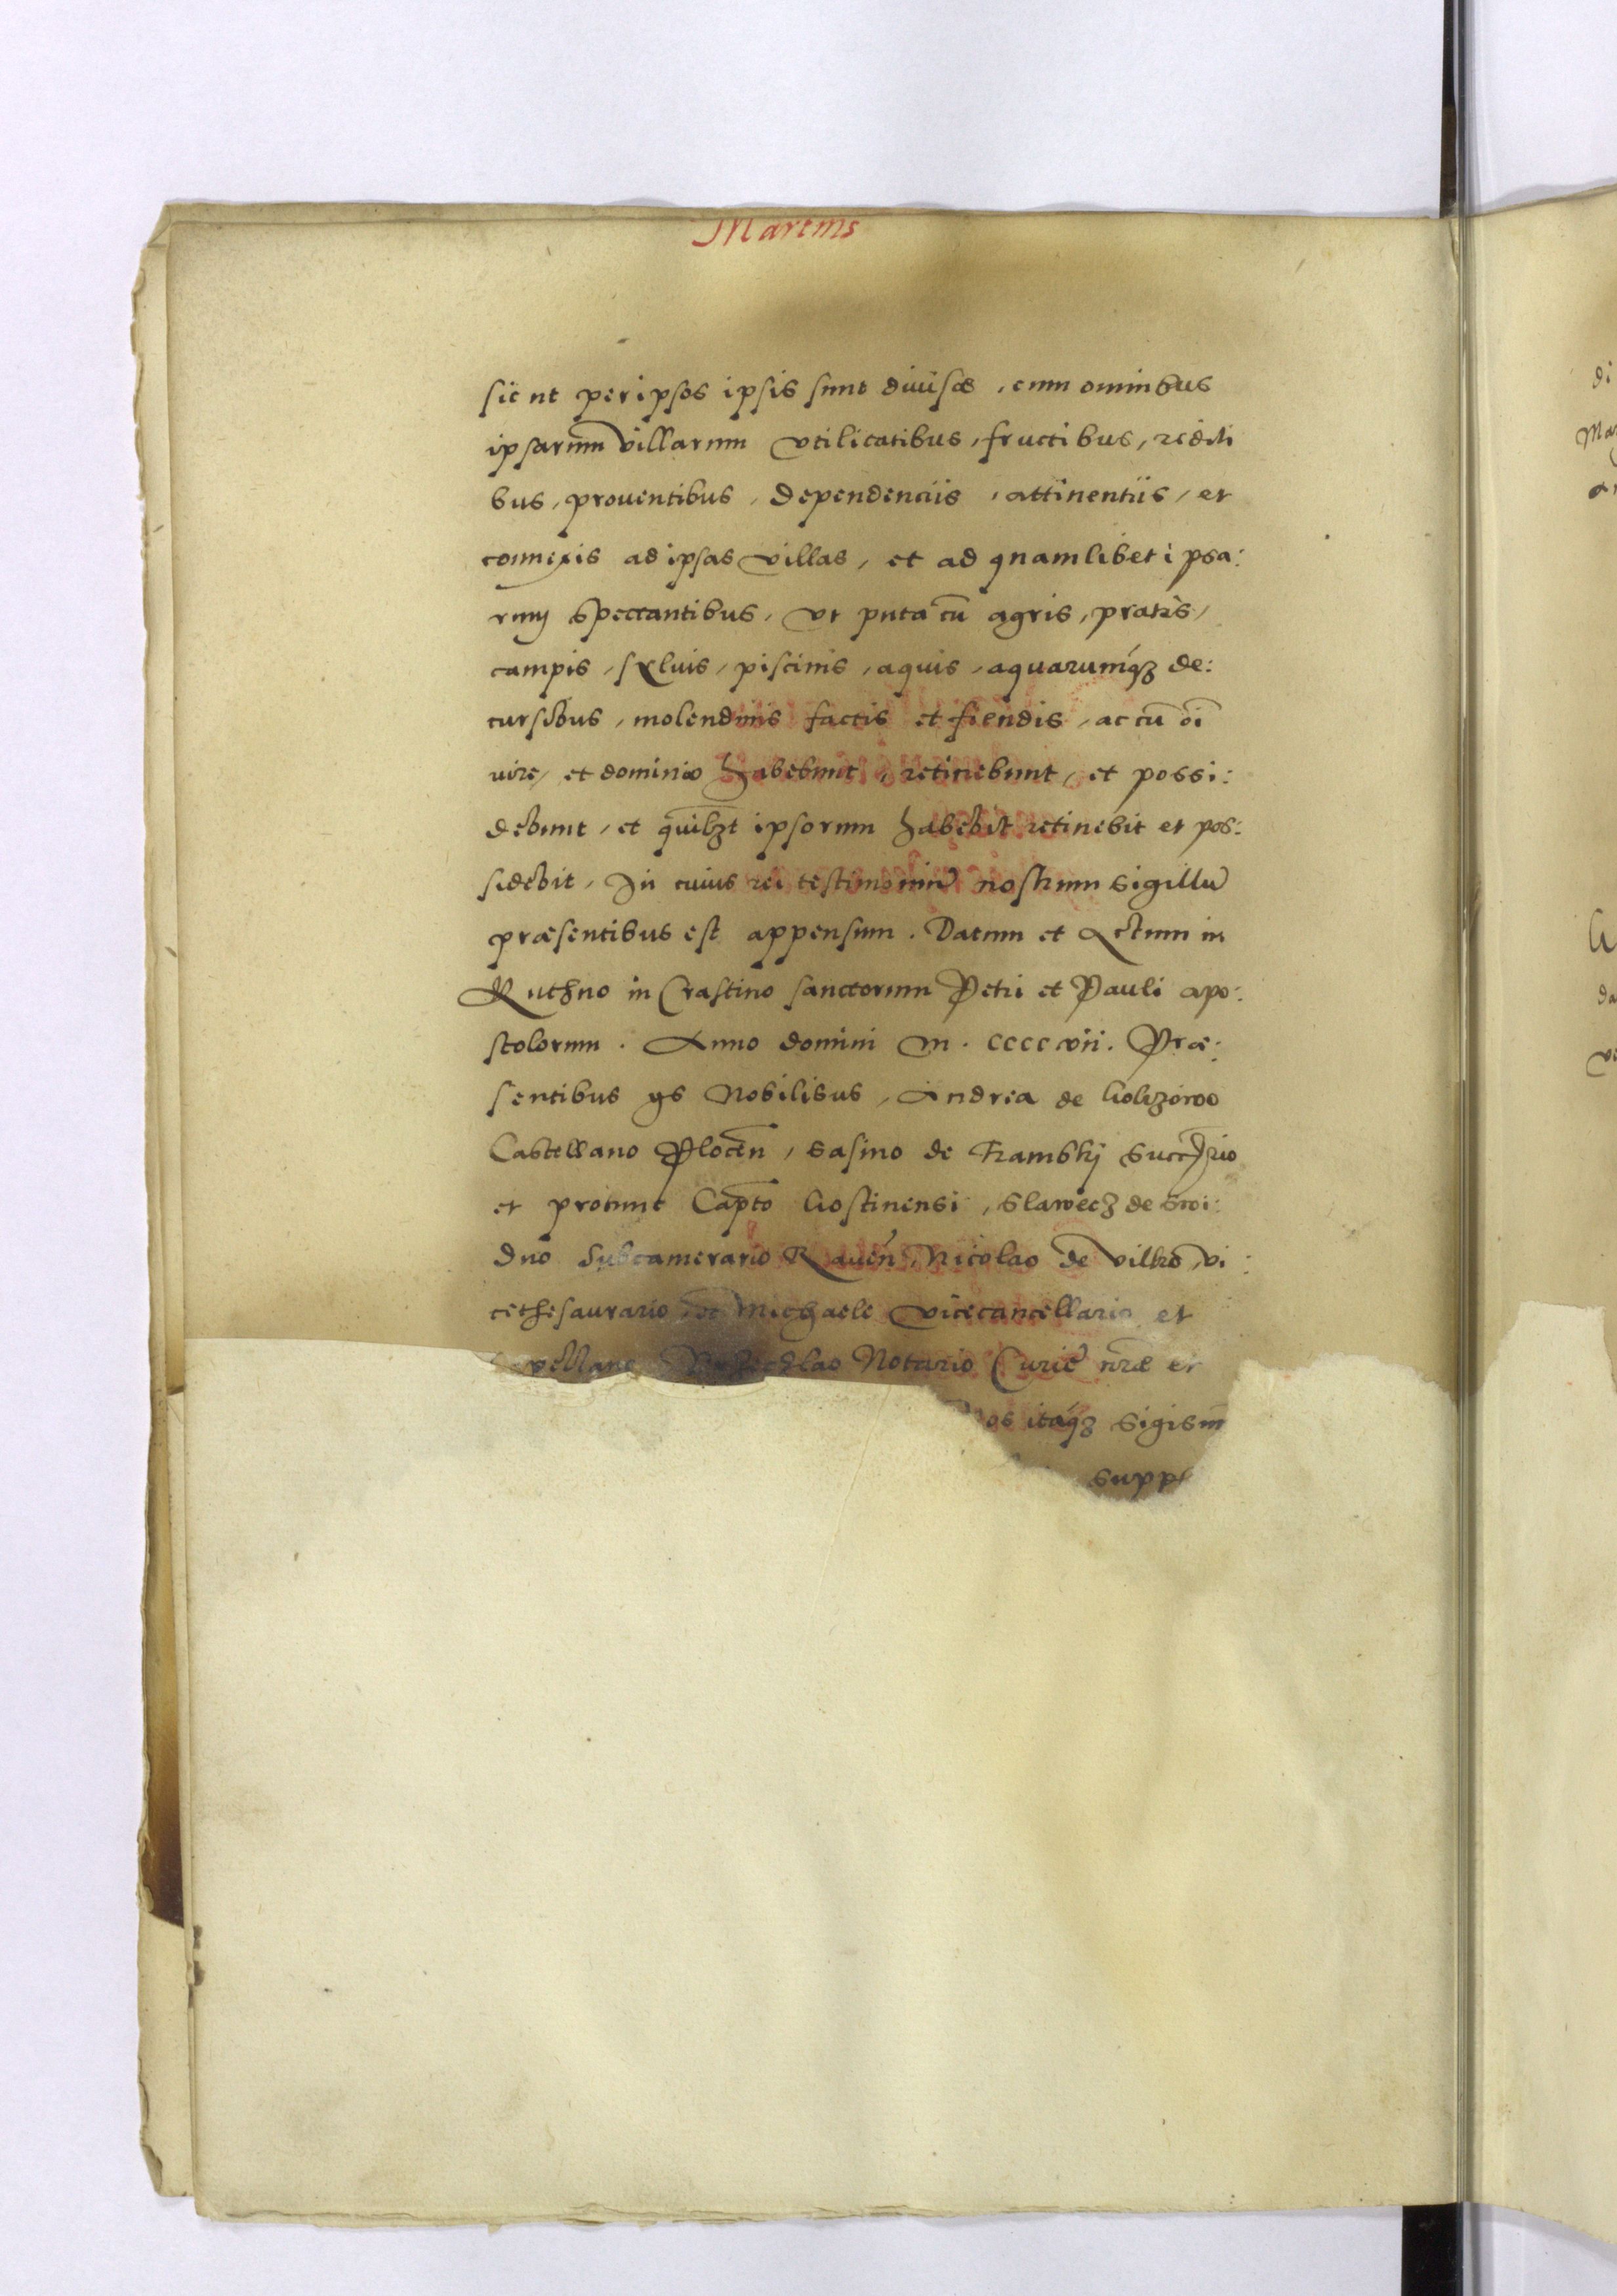 Martinis
sicut per ipsos ipsis sunt diuisæ, cum omnibus
ipsarum villarum vtilitatibus, fructibus, rediti
bus, prouentibus, dependenciis, attinentiis, et
connexis ad ipsas villas, et ad quamlibet ipsa:
rum spectantibus, vt puta cū agris, pratis,
campis, syluis, piscinis, aquis, aquarumq́ꝫ de:
cursibus, molendinis factis et fiendis, ac cū oī
iure, et dominio habebunt, retinebunt, et possi:
debunt, et quilibꝫt ipsorum habebit retinebit et pos:
sidebit, In cuius rei testimoniū nostrum sigillū
præsentibus est appensum. Datum et Actum in
Kuthno in Crastino sanctorum Petri et Pauli apo:
stolorum. Anno domini M. CCCC vii. Præ:
sentibus ijs Nobilibus, Andrea de Golczowo
Castellano Plocen̄, Sasino de Trambkj
et protunc Capto Gostinensi, Slawecz de Swi:
dno Subcamerario Rauen̄, Nicolao de Vilko, vi:
cethesaurario Michaele vicecancellario et
Notario Curiē nr̄æ et
os itaq́ꝫ Sigism̄
supp